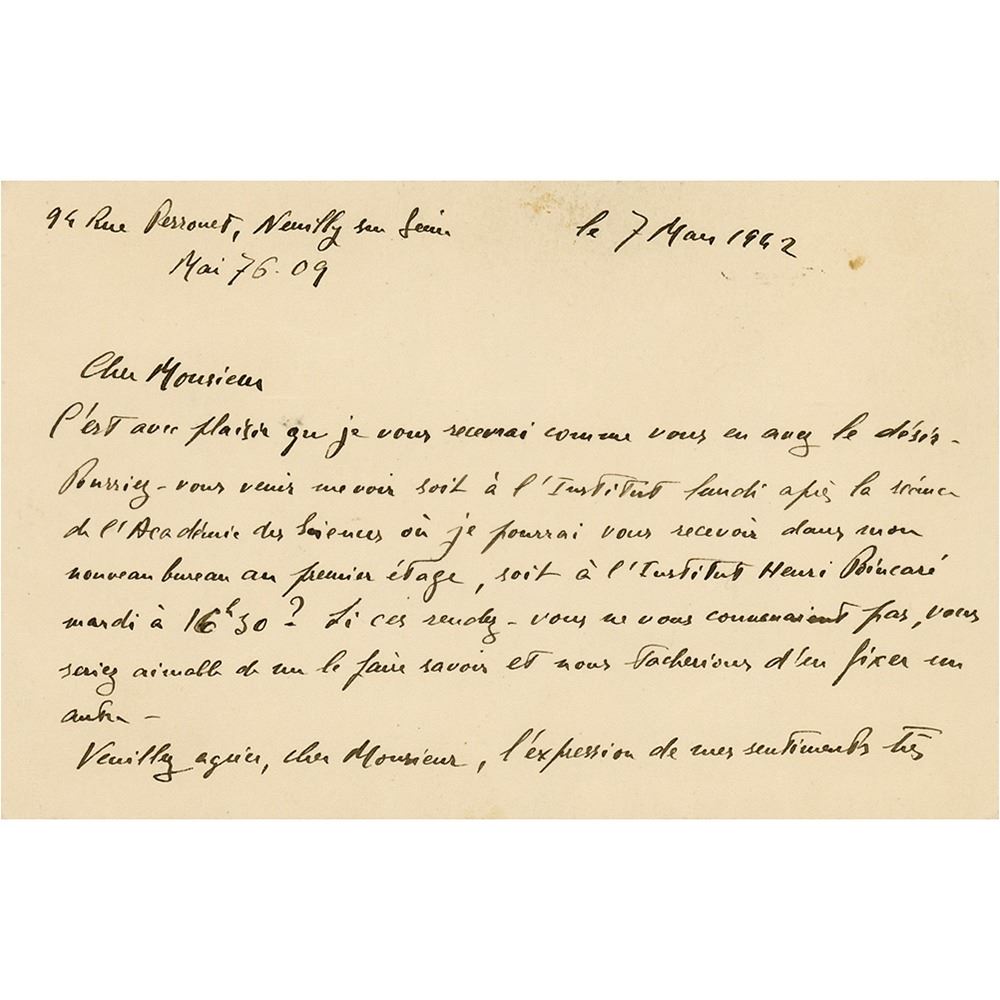 94 Rue Perronet, Neuilly sur Seine le 7 Mars 1942
Mai 76-09
Cher Monsieur
C'est avec plaisir que je vous recevrai comme vous en avez le désir -
Pourriez-vous venir me voir soit à l'Institut lundi après la séance
de l'Académie des Sciences où je pourrai vous recevoir dans mon
nouveau bureau au premier étage, soit à l'Institut Henri Poincaré
mardi à 16h30? Si ces rendez-vous ne vous convenaient pas, vous
seriez aimable de me le faire savoir et nous tacherions d'en fixer un
autre -
Veuillez agréer, cher Monsieur, l'expression de mes sentiments très